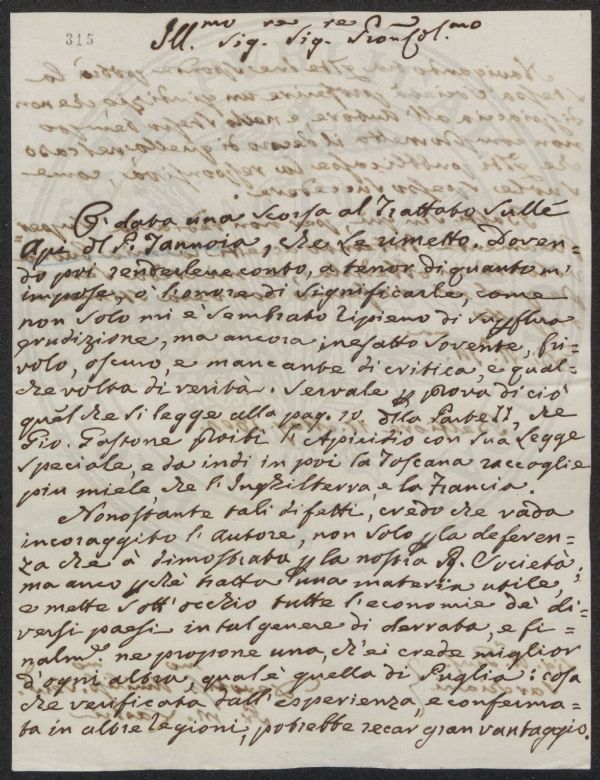 315
Ill.mo Sig.re Sig.re Pron Col.mo
O' data una scorsa al Trattato sulle
Api del P. Tannoia, che Le rimetto. Doven=
do poi renderlene conto, a tenor di quanto m'
impose, ò l'honore di significarle, come
non solo mi è sembrato ripieno di superflua
erudizione, ma ancora inesatto sovente, fri=
volo, oscuro, e mancante di critica, e qual=
che volta di verità. Servale per prova di ciò
quel che si legge alla pag. 10. della Parte II, che
Gio. Gastone proibì l'Apicidio con sua Legge
speciale, e da indi in poi la Toscana raccoglie
più miele, che l'Inghilterra, e la Francia.
Nonostante tali difetti, credo che vada
incoraggito l'autore, non solo per la deferen=
za che à dimostrata per la nostra R. Società,
ma anco perchè tratta una materia utile,
e mette sott'occhio tutte l'economie de' di=
versi paesi in tal genere di derrata, e fi=
nalm.e ne propone una, ch'ei crede miglior
d'ogni altra, qual'è quella di Puglia: cosa
che verificata dall'esperienza, e conferma=
ta in altre regioni, potrebbe recar gran vantaggio.